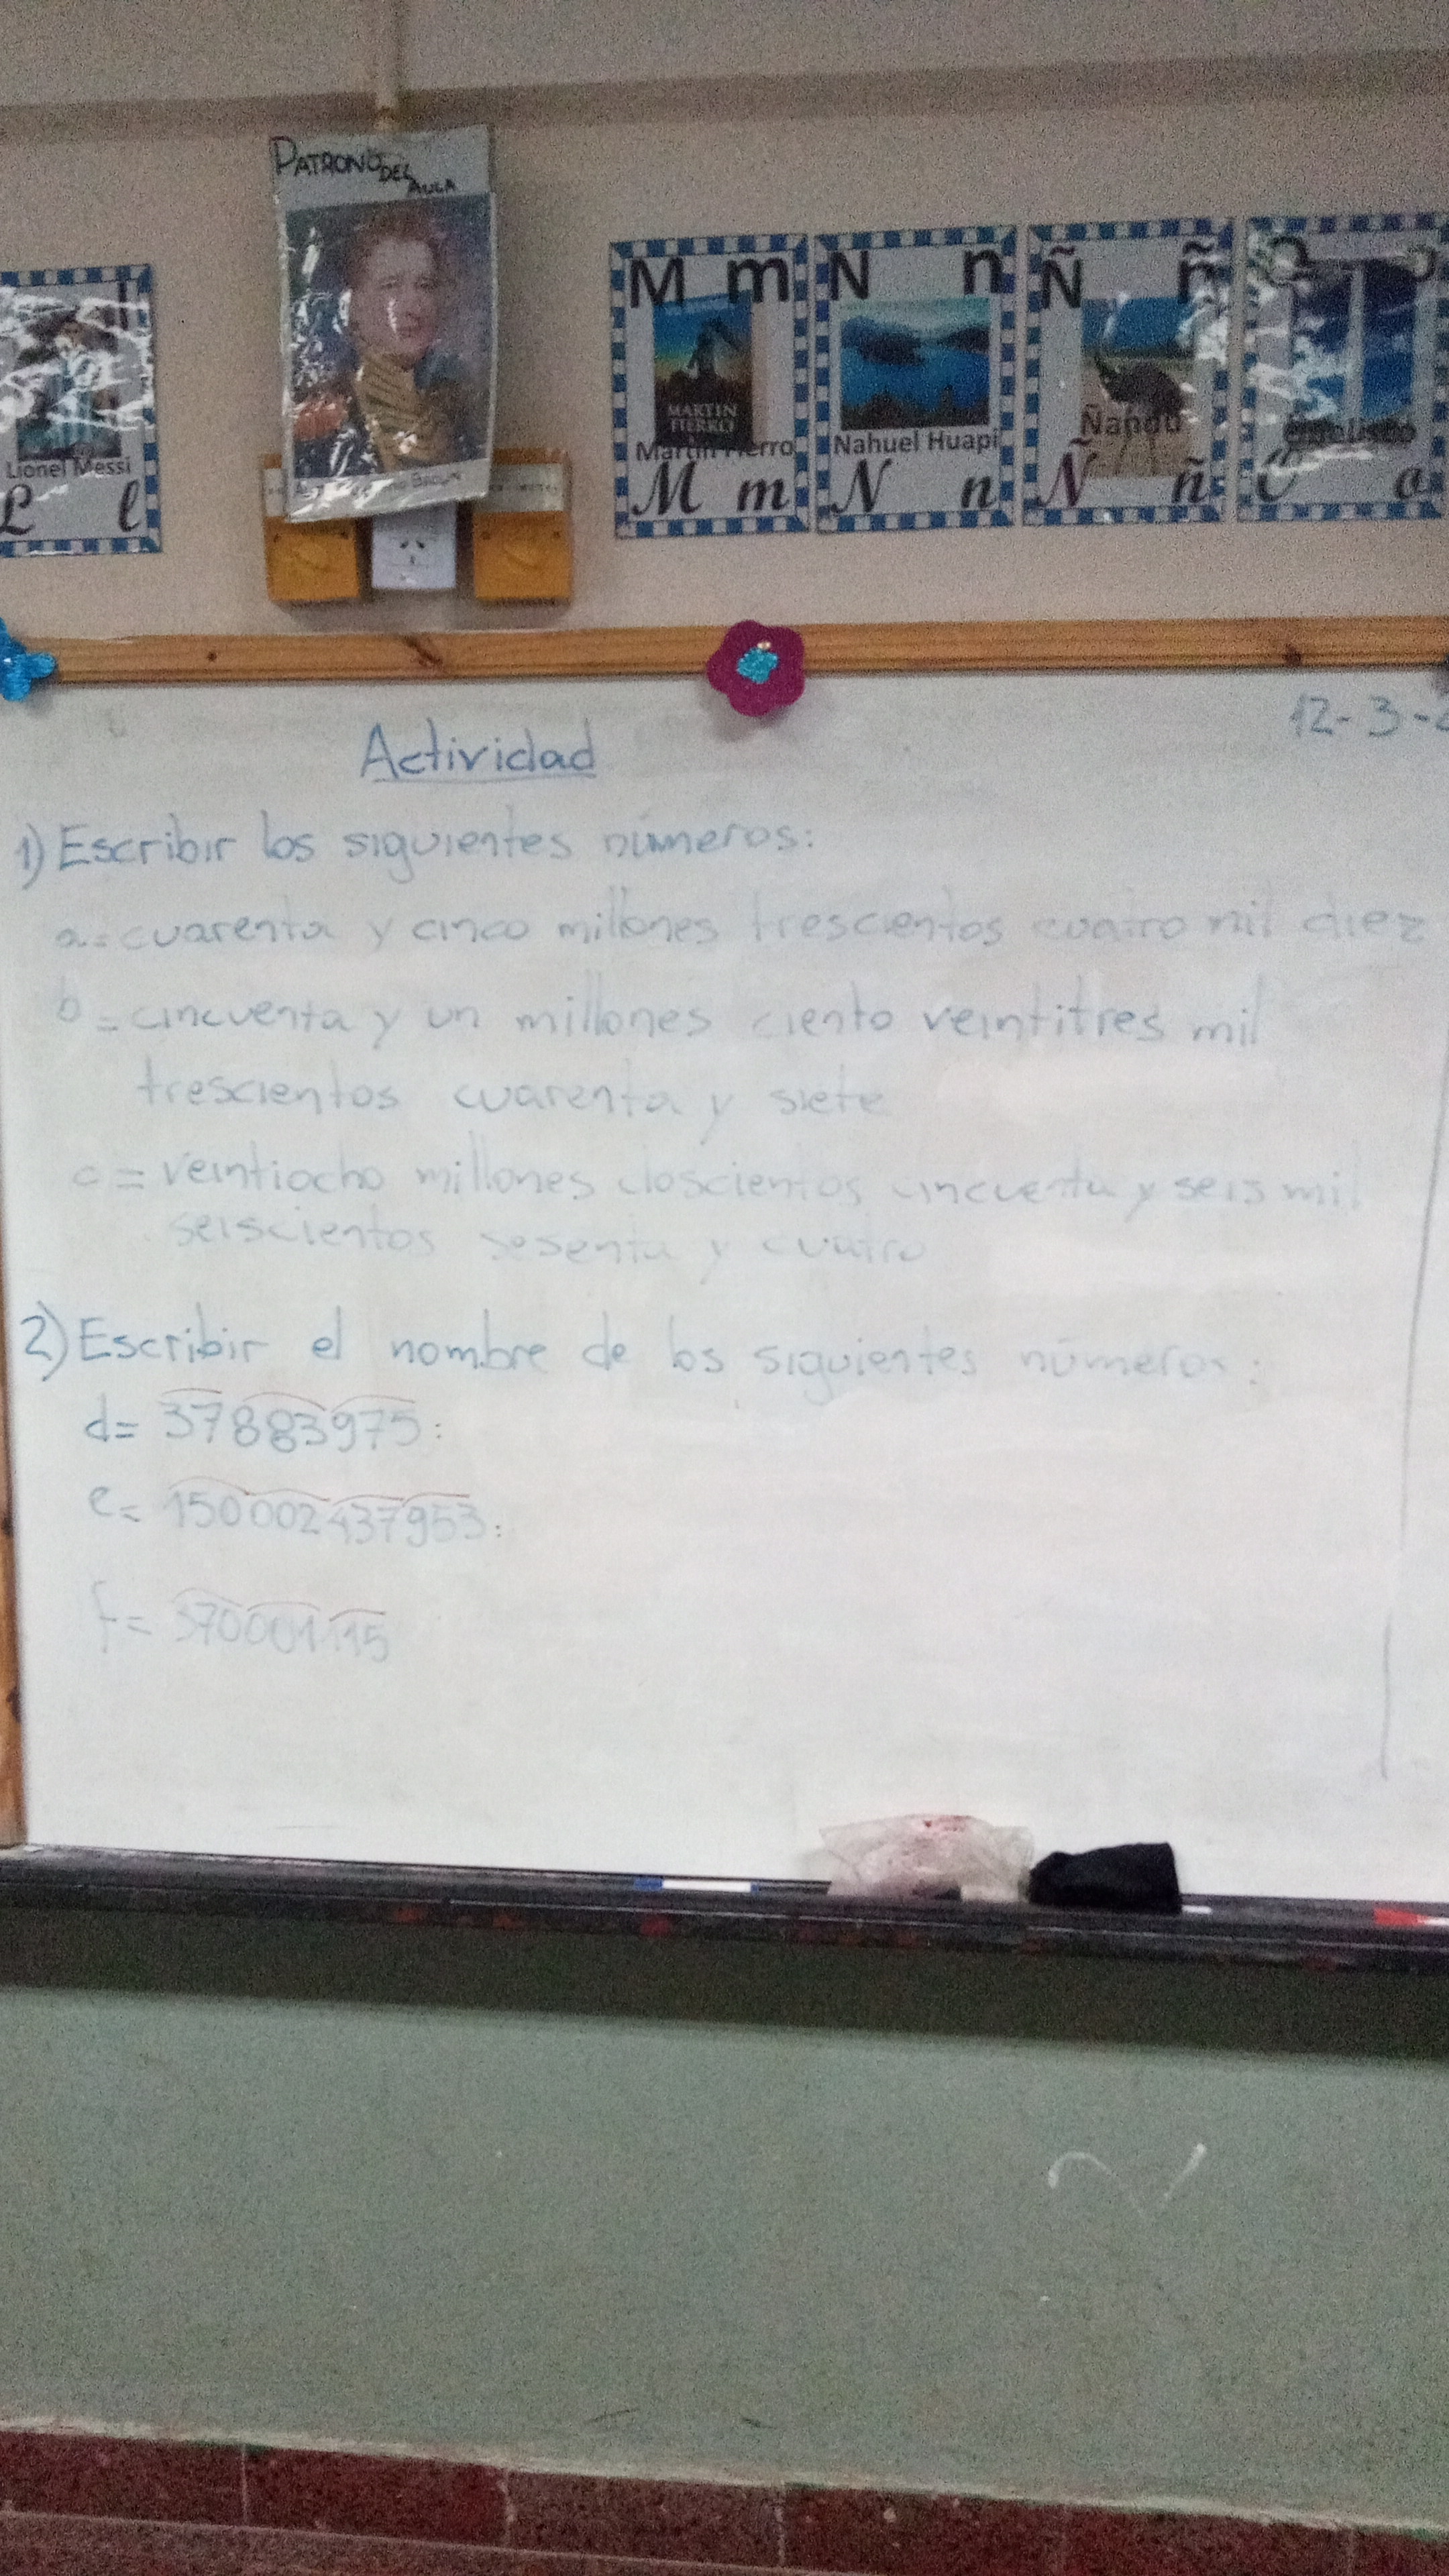 PATRONO DEL AULA
Lionel Messi
L l
M m
MARTIN FIERRO
Martín Fierro
M m
N n
Nahuel Huapi
N n
Ñ ñ
Ñandú
Ñ ñ
O o
O o
12-3-
Actividad
1) Escribir los siguientes números:
a= cuarenta y cinco millones trescientos cuatro mil diez
b= cincuenta y un millones ciento veintitres mil
trescientos cuarenta y siete
c= veintiocho millones doscientos cincuenta y seis mil
seiscientos sesenta y cuatro
2) Escribir el nombre de los siguientes números:
d= 37883975:
e= 150002437953:
f= 370001115